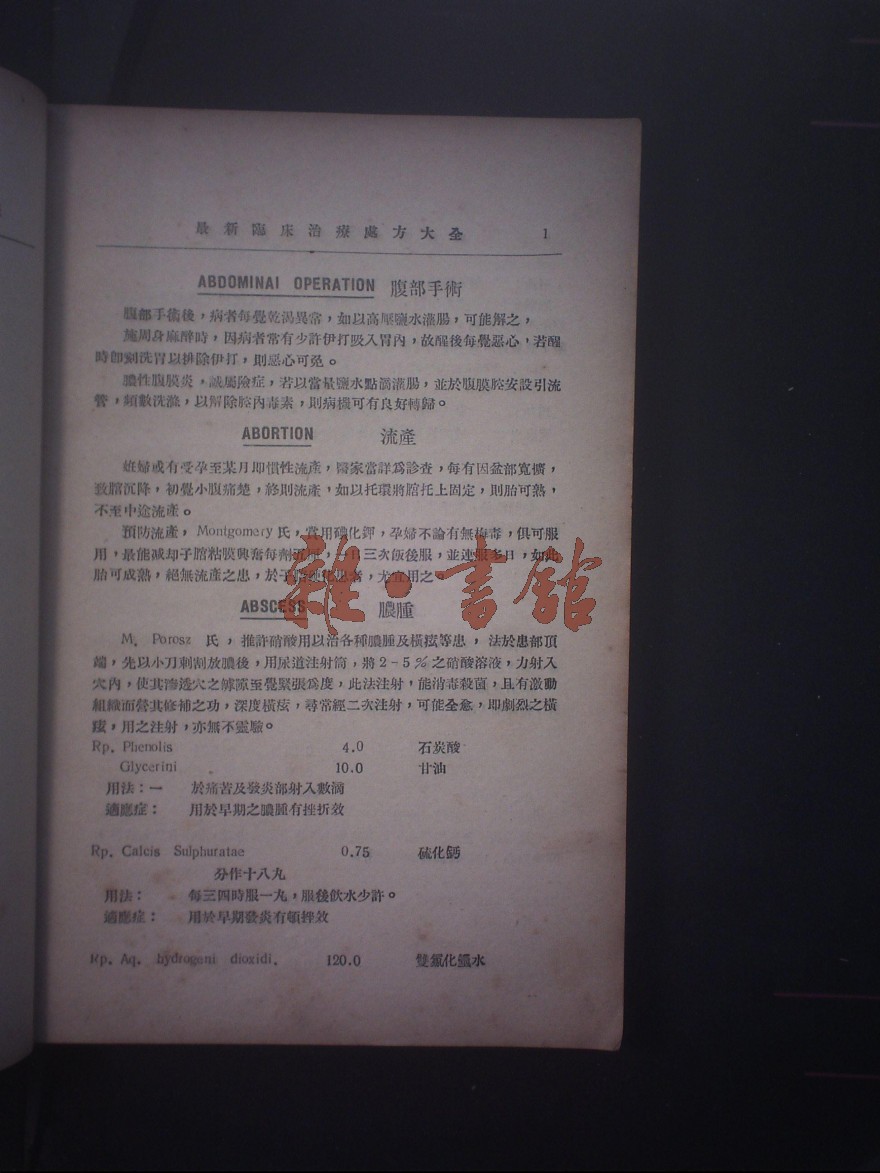 最新臨床治療處方大全 1
ABDOMINAI OPERATION 腹部手術
腹部手術後，病者每覺乾渴異常，如以高壓鹽水灌腸，可能解之，
施周身麻醉時，因病者常有少許伊打吸入胃內，故醒後每覺惡心，若醒
時即刻洗胃以排除伊打，則惡心可免。
膿性腹膜炎，誠屬險症，若以當量鹽水點滴灌腸，並於腹膜腔安設引流
管，頻數洗滌，以解除腔內毒素，則病機可有良好轉歸。
ABORTION 流產
姙婦或有受孕至某月即慣性流產，醫家當詳為診查，每有因盆部寬擴，
致䐃沉降，初覺小腹痛楚，終則流產，如以托環將䐃托上固定，則胎可熟，
不至中途流產。
預防流產，Montgomery 氏，嘗用碘化鉀，孕婦不論有無梅毒，俱可服
用，最能減却子䐃粘膜興奮每劑，一日三次飯後服，並連服多日，如此
胎可成熟，絕無流產之患，於患者，尤宜用之。
ABSCESS 膿腫
M. Porosz 氏，推許硝酸用以治各種膿腫及橫痃等患，法於患部頂
端，先以小刀刺割放膿後，用尿道注射筒，將2-5%之硝酸溶液，力射入
穴內，使其滲透穴之罅隙至覺緊張為度，此法注射，能消毒殺菌，且有激動
組織而營其修補之功，深度橫痃，尋常經二次注射，可能全愈，即劇烈之橫
痃，用之注射，亦無不靈驗。
Rp. Phenolis 4.0 石炭酸
Glycerini 10.0 甘油
用法：一 於痛苦及發炎部射入數滴
適應症： 用於早期之膿腫有挫折效
Rp. Calcis Sulphuratae 0.75 硫化鈣
分作十八丸
用法： 每三四時服一丸，服後飲水少許。
適應症： 用於早期發炎有頓挫效
Rp. Aq. hydrogeni dioxidi. 120.0 雙氯化氫水
雜·書館